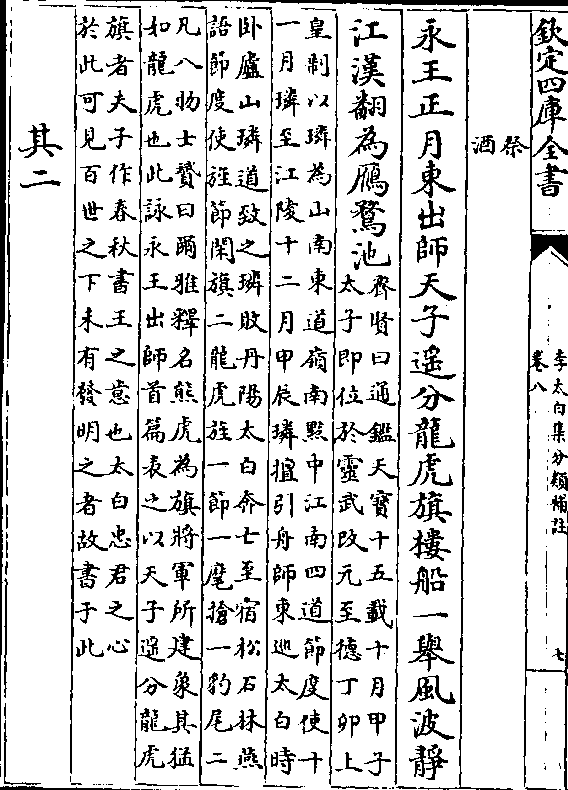 欽定四庫全書
李太白集分類補註
卷八
七
祭
酒
永王正月東出師天子遥分龍虎旗樓船一舉風波靜
江漢翻為鴈鶩池
齊賢曰通鑑天寳十五載十月甲子
太子即位於靈武改元至德丁卯上
皇制以璘為山南東道嶺南黔中江南四道節度使十
一月璘至江陵十二月甲辰璘擅引舟師東巡太白時
卧廬山璘道致之璘敗丹陽太白奔亡至宿松石林燕
語節度使旌節閑旗二龍虎旌一節一麾搶一豹尾二
凡八物士贇曰爾雅釋名熊虎為旗將軍所建象其猛
如龍虎也此詠永王出師首篇表之以天子遥分龍虎
旗者夫子作春秋書王之意也太白忠君之心
於此可見百世之下未有發明之者故書于此
其二